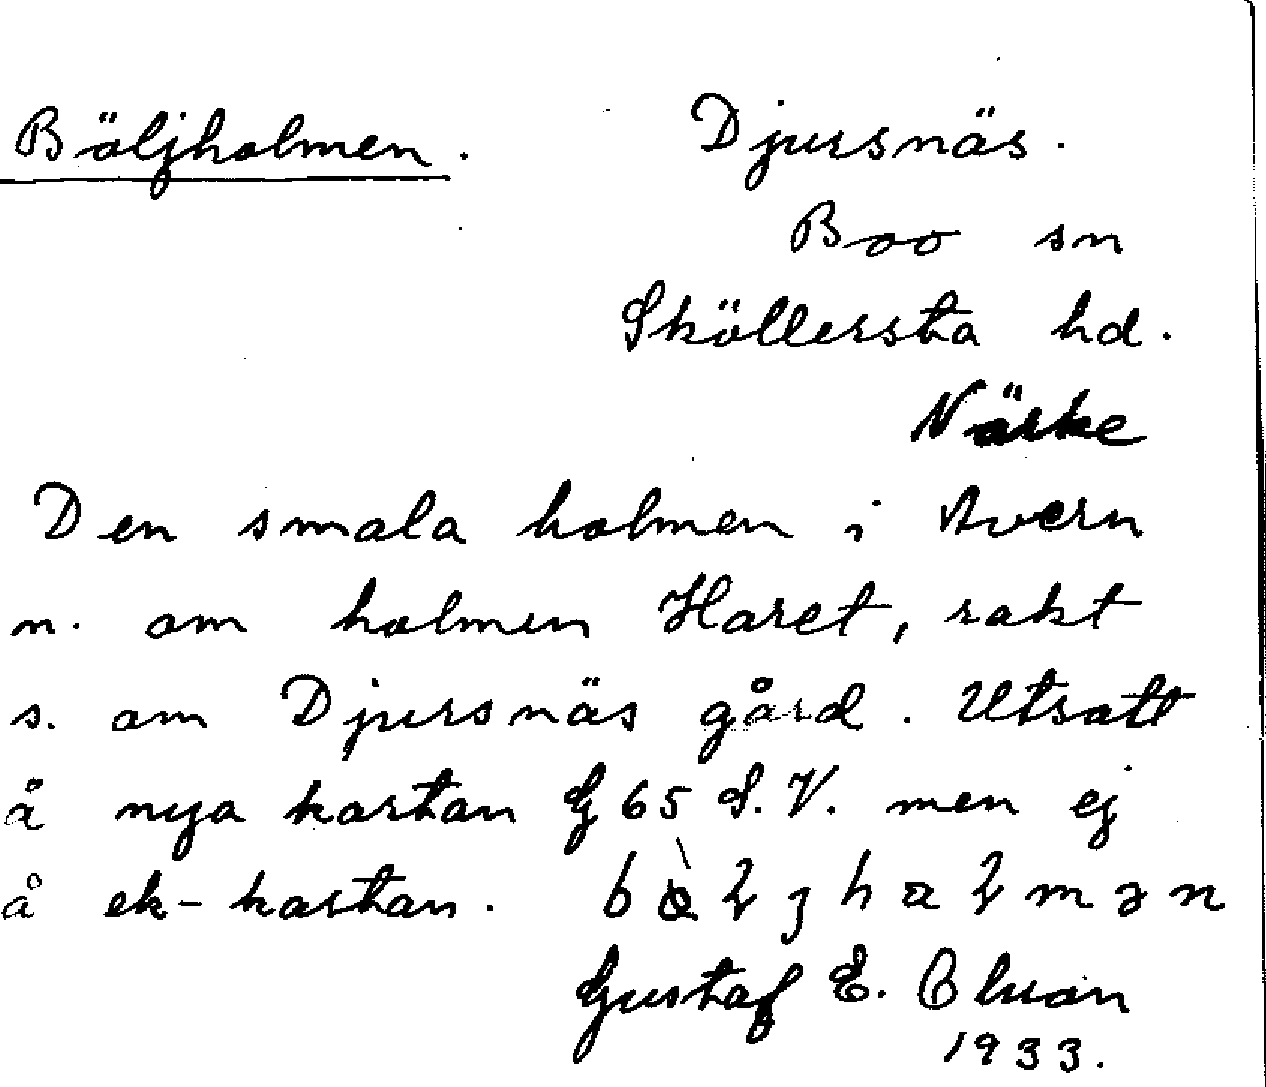 Böljholmen. Djursnäs.
Boo sn
Sköllersta hd.
Närke
Den smala holmen i Avern
n. om holmen Haret, rakt
s. om Djursnäs gård. Utsatt
å nya kartan G 65 S.V. men ej
å ek-kartan.
Gustaf E.
1933.